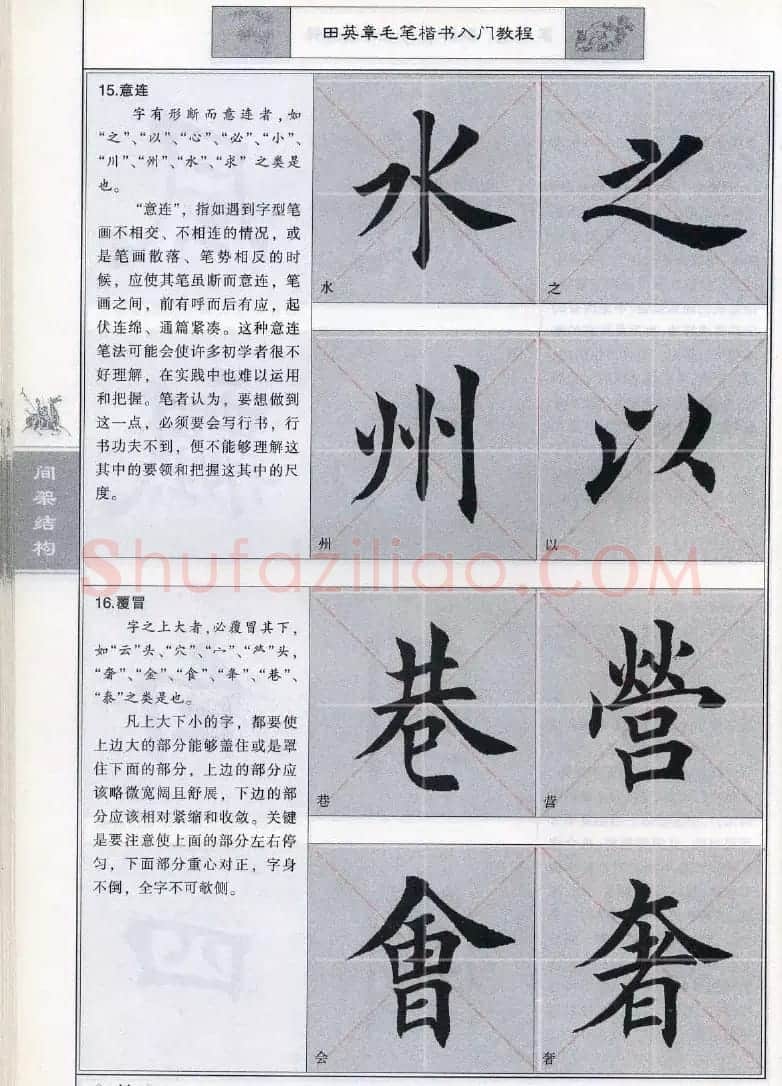 田英章毛笔楷书入门教程
15.意连
字有形断而意连者,如
“之”、“以”、“心”、“必”、“小”、
“川”、“州”、“水”、“求”之类是
也。
“意连”，指如遇到字型笔
画不相交、不相连的情况，或
是笔画散落、笔势相反的时
候，应使其笔虽断而意连，笔
画之间，前有呼而后有应，起
伏连绵、通篇紧凑。这种意连
笔法可能会使许多初学者很不
好理解，在实践中也难以运用
和把握。笔者认为，要想做到
这一点，必须要会写行书，行
书功夫不到，便不能够理解这
其中的要领和把握这其中的尺
度。
水
之
水
之
州
以
州
以
间架结构
Shufaziliao.COM
16.覆冒
字之上大者,必覆冒其下,
如“云”头、“穴”、“宀”、“癶”头,
“奢”、“金”、“食”、“夆”、“巷”、
“泰”之类是也。
凡上大下小的字，都要使
上边大的部分能够盖住或是罩
住下面的部分，上边的部分应
该略微宽阔且舒展，下边的部
分应该相对紧缩和收敛。关键
是要注意使上面的部分左右停
匀，下面部分重心对正，字身
不倒，全字不可欹侧。
巷
營
巷
营
會
奢
会
奢